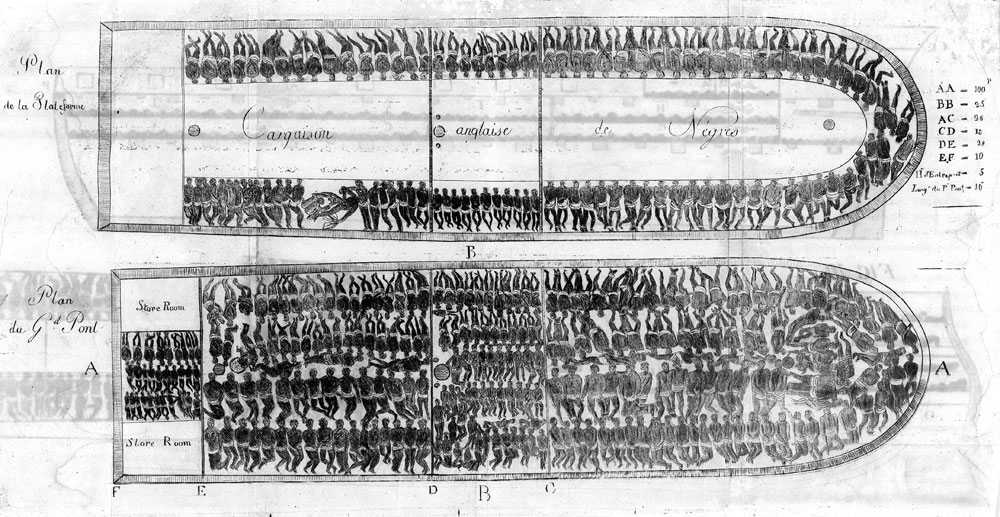 Plan
de la Plateforme
Cargaison anglaise de Nègres
P
AA = 100
BB = 25
AC = 26
CD = 12
DE = 29
EF = 10
H.r d'Entrepont = 5
Long.r du P.t Pont = 16
B
Plan
du G.d Pont
Store Room
A
A
Store Room
F E D B C